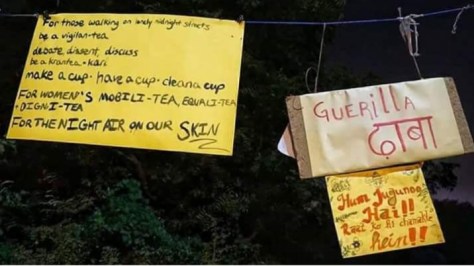 For those walking on lonely midnight streets
be a vigilan-tea
debate dissent, discuss
be a krantea-kari
make a cup. have a cup. clean a cup
FOR WOMENP'S MOBILI-TEA, EQUALI-TEA
+ DIGNI-TEA
FOR THE NIGHT AIR ON OUR SKIN
GUERILLA
ढाबा
Hum Jugunoo
Hai!!
Raat ko hi chamakte
hein!!